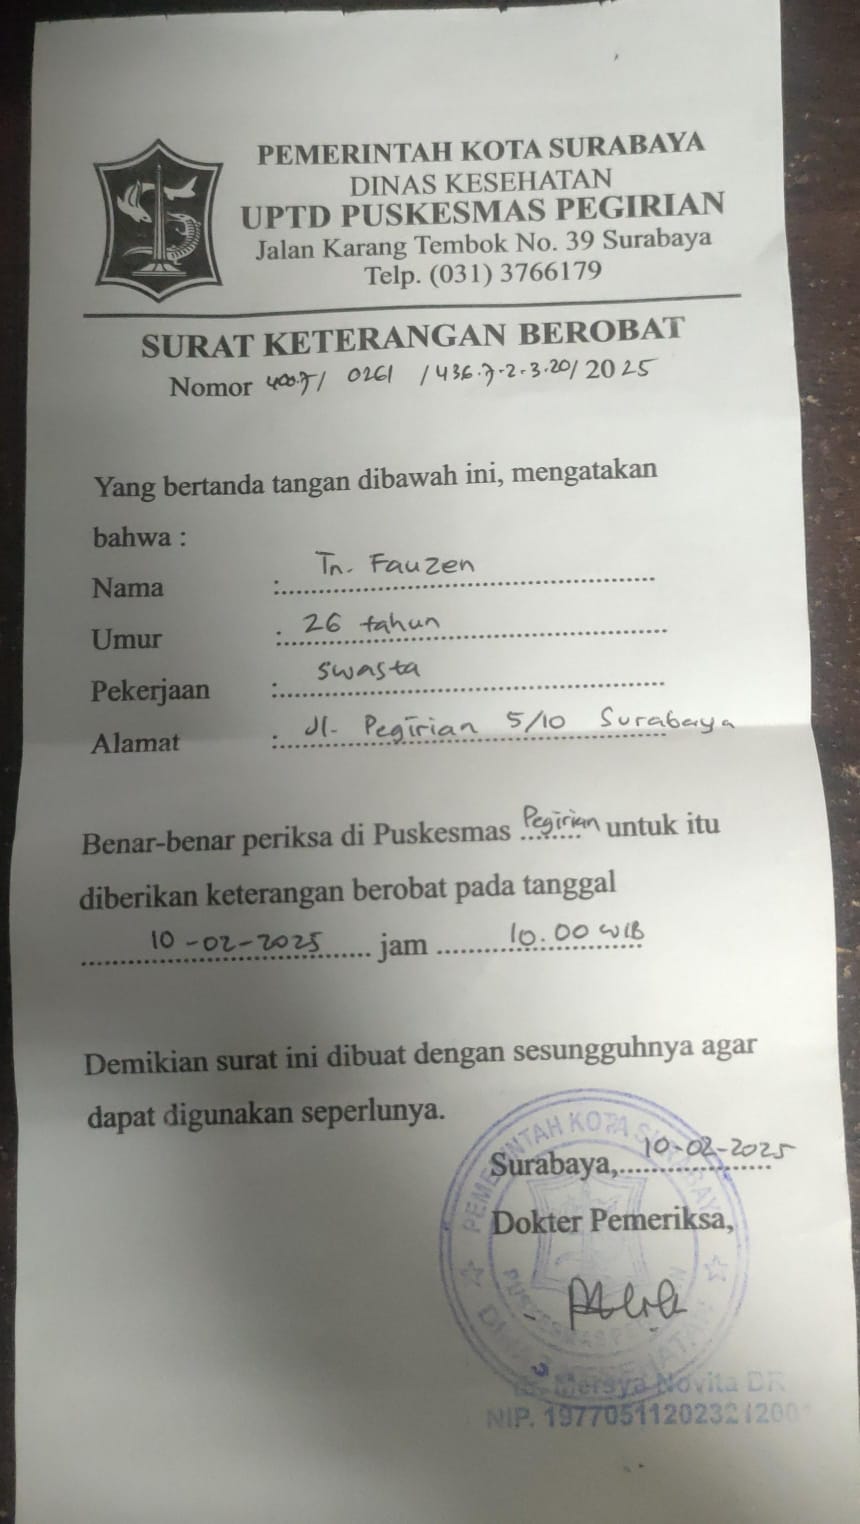 PEMERINTAH KOTA SURABAYA
DINAS KESEHATAN
UPTD PUSKESMAS PEGIRIAN
Jalan Karang Tembok No. 39 Surabaya
Telp. (031) 3766179
SURAT KETERANGAN BEROBAT
Nomor 400.7/ 0261 /436.7.2.3.20/ 2025
Yang bertanda tangan dibawah ini, mengatakan
bahwa :
Nama : Tn. Fauzen
Umur : 26 tahun
Pekerjaan : Swasta
Alamat : Jl. Pegirian 5/10 Surabaya
Benar-benar periksa di Puskesmas Pegirian untuk itu
diberikan keterangan berobat pada tanggal
10-02-2025 jam 10.00 WIB
Demikian surat ini dibuat dengan sesungguhnya agar
dapat digunakan seperlunya.
Surabaya, 10-02-2025
Dokter Pemeriksa,
PEMERINTAH KOTA SURABAYA
DINAS KESEHATAN
Novita
NIP.